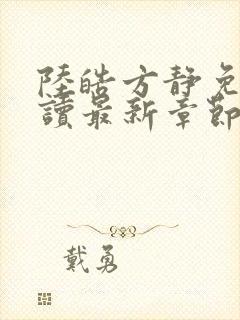 陸皓方静免
讀最新章節
戴勇